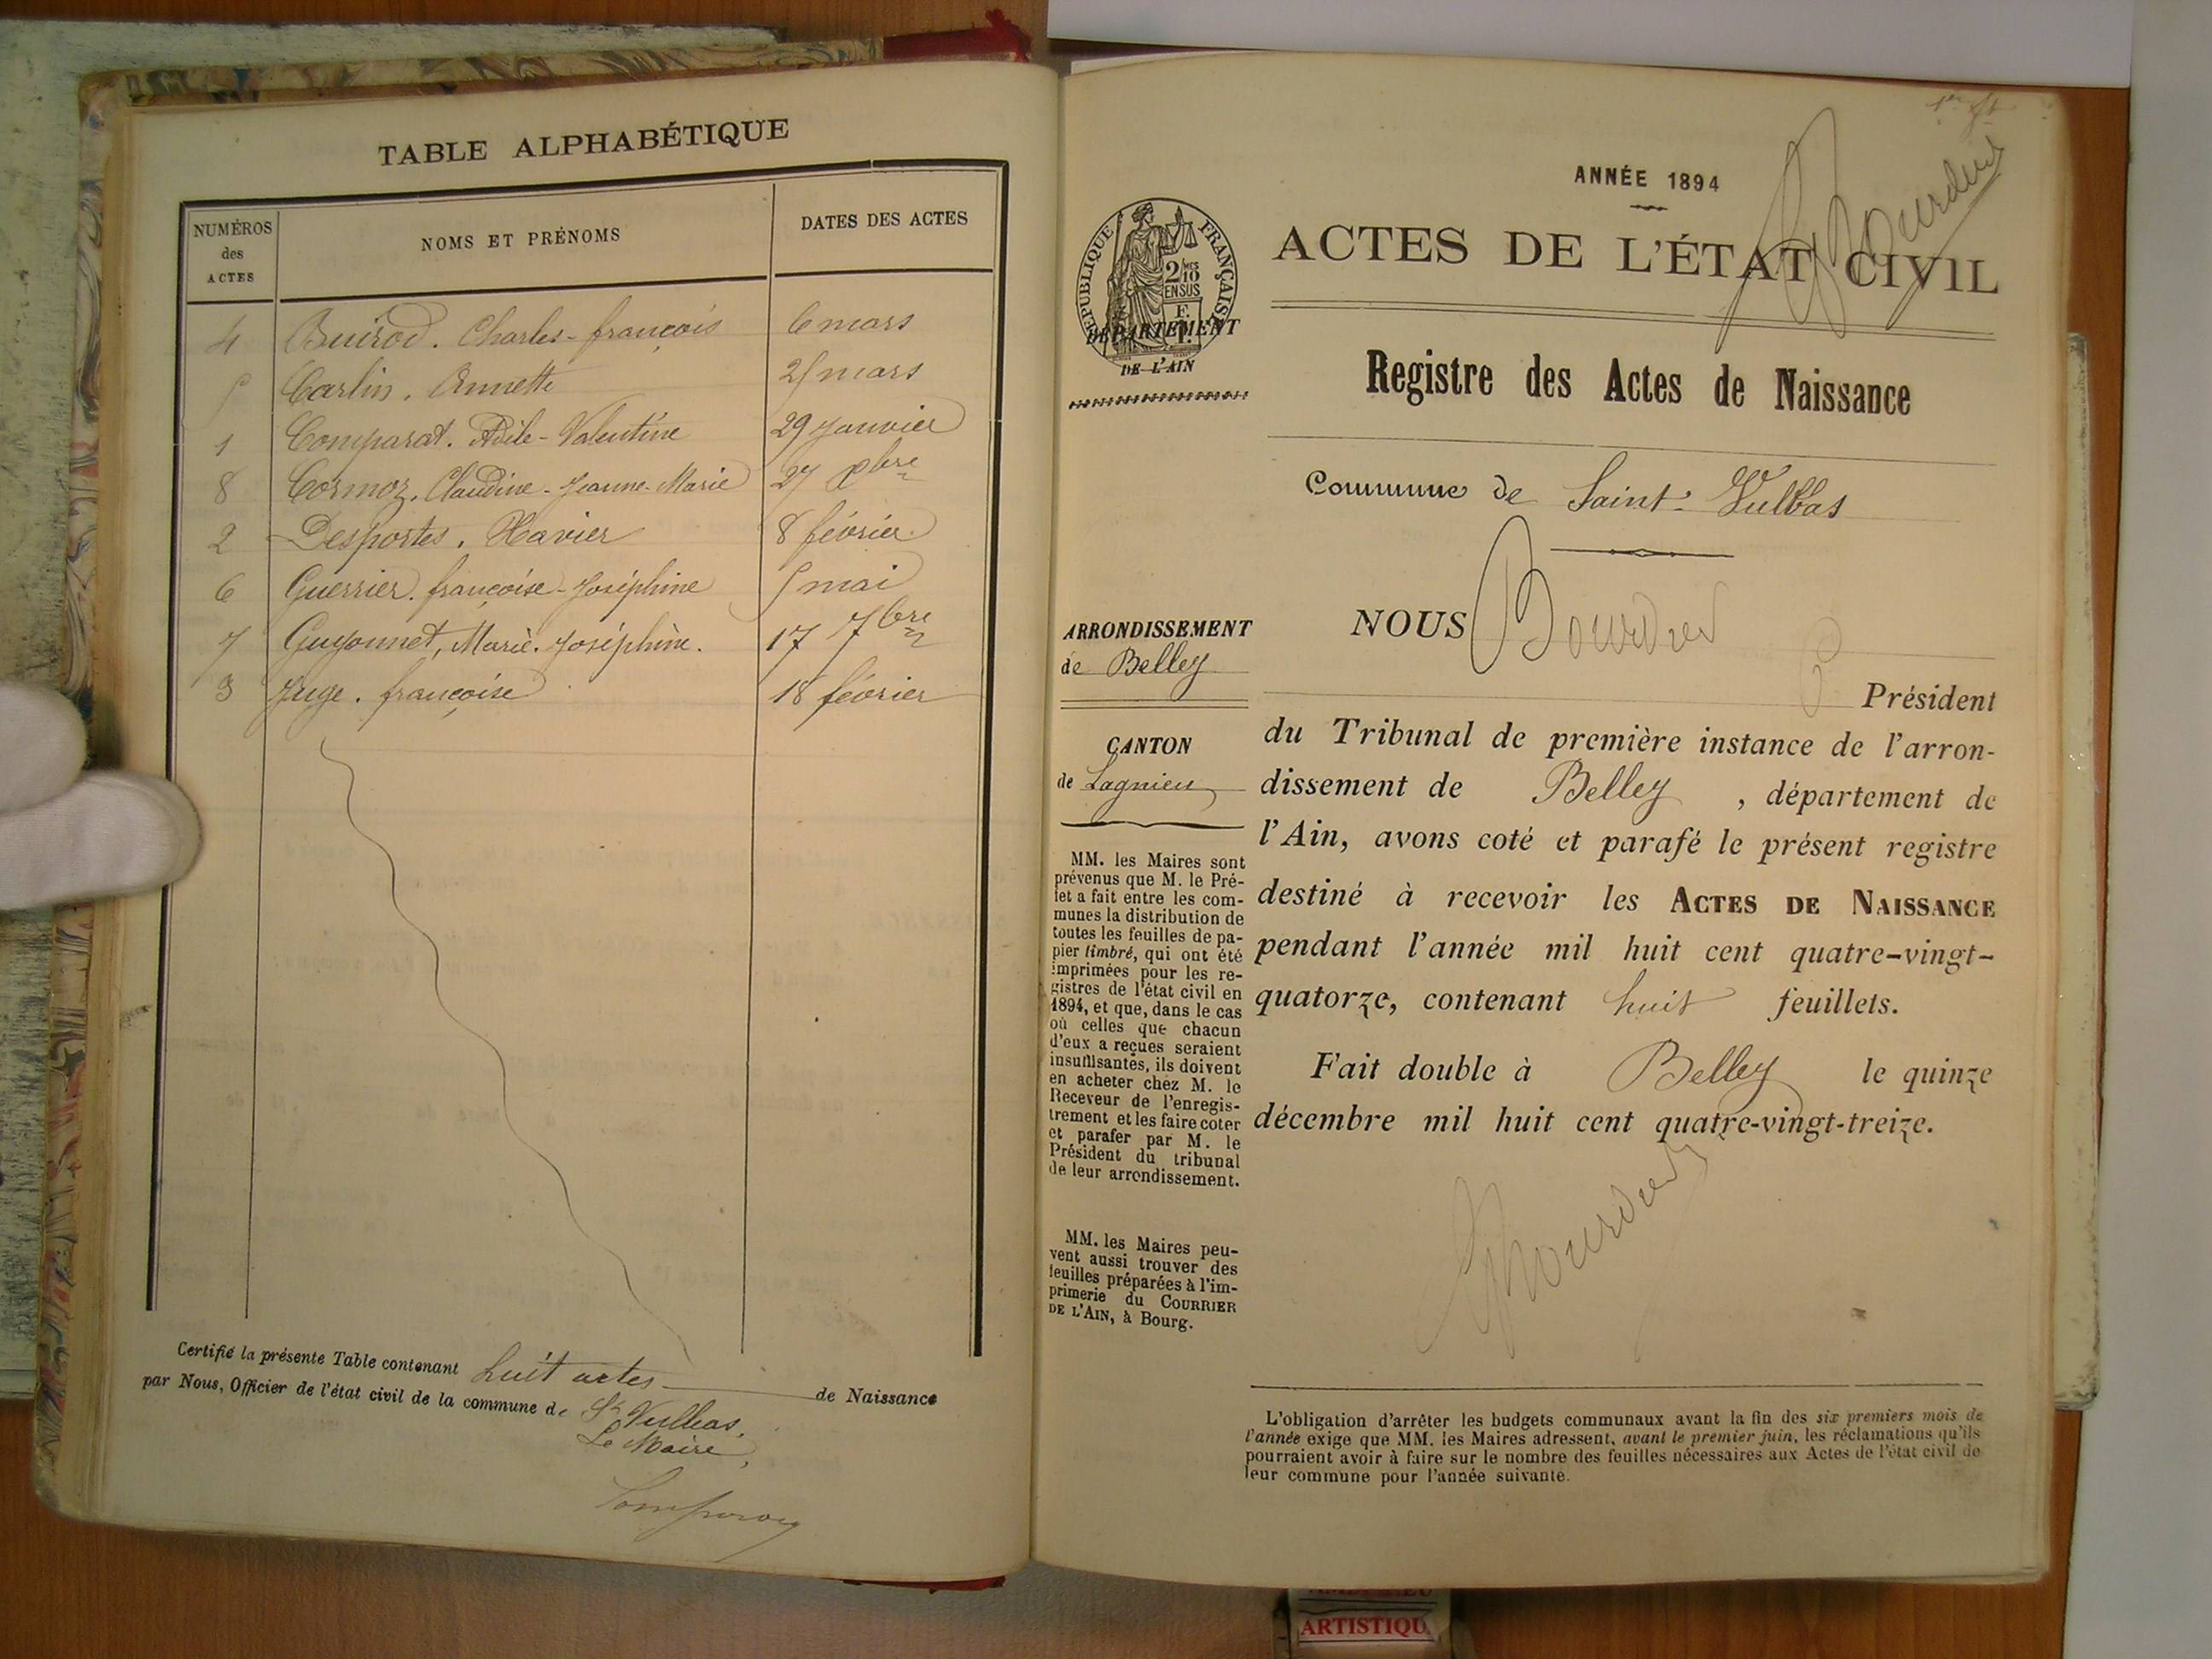 TABLE ALPHABÉTIQUE
NUMÉROS des ACTES
NOMS ET PRÉNOMS
DATES DES ACTES
4 Buirod. Charles-françois 6 mars
5 Carlin. Annette 25 mars
1 Comparat. Adile-Valentine 29 Janvier
8 Cormoz. Claudine-Jeanne-Marie 27 xbre
2 Desportes. Xavier 8 février
6 Guerrier. françoise-Joséphine 5 mai
7 Guyonnet, Marie. Joséphine. 17 7bre
3 Juge. françoise 18 février
Certifié la présente Table contenant huit actes de Naissance
par Nous, Officier de l'état civil de la commune de St Vulbas,
Le Maire,
ANNÉE 1894
ACTES DE L'ÉTAT CIVIL
RÉPUBLIQUE FRANÇAISE
2/10 EN SUS
DÉPARTEMENT
DE L'AIN
Registre des Actes de Naissance
Commune de Saint-Vulbas
ARRONDISSEMENT
de Belley
CANTON
de Lagnieu
MM. les Maires sont
prévenus que M. le Pré-
fet a fait entre les com-
munes la distribution de
toutes les feuilles de pa-
pier timbré, qui ont été
imprimées pour les re-
gistres de l'état civil en
1894, et que, dans le cas
où celles que chacun
d'eux a reçues seraient
insuffisantes, ils doivent
en acheter chez M. le
Receveur de l'enregis-
trement et les faire coter
et parafer par M. le
Président du tribunal
de leur arrondissement.
MM. les Maires peu-
vent aussi trouver des
feuilles préparées à l'im-
primerie du COURRIER
DE L'AIN, à Bourg.
NOUS Bourdin
Président
du Tribunal de première instance de l'arron-
dissement de Belley, département de
l'Ain, avons coté et parafé le présent registre
destiné à recevoir les ACTES DE NAISSANCE
pendant l'année mil huit cent quatre-vingt-
quatorze, contenant huit feuillets.
Fait double à Belley le quinze
décembre mil huit cent quatre-vingt-treize.
L'obligation d'arrêter les budgets communaux avant la fin des six premiers mois de
l'année exige que MM. les Maires adressent, avant le premier juin, les réclamations qu'ils
pourraient avoir à faire sur le nombre des feuilles nécessaires aux Actes de l'état civil de
leur commune pour l'année suivante.
ARTISTIQU